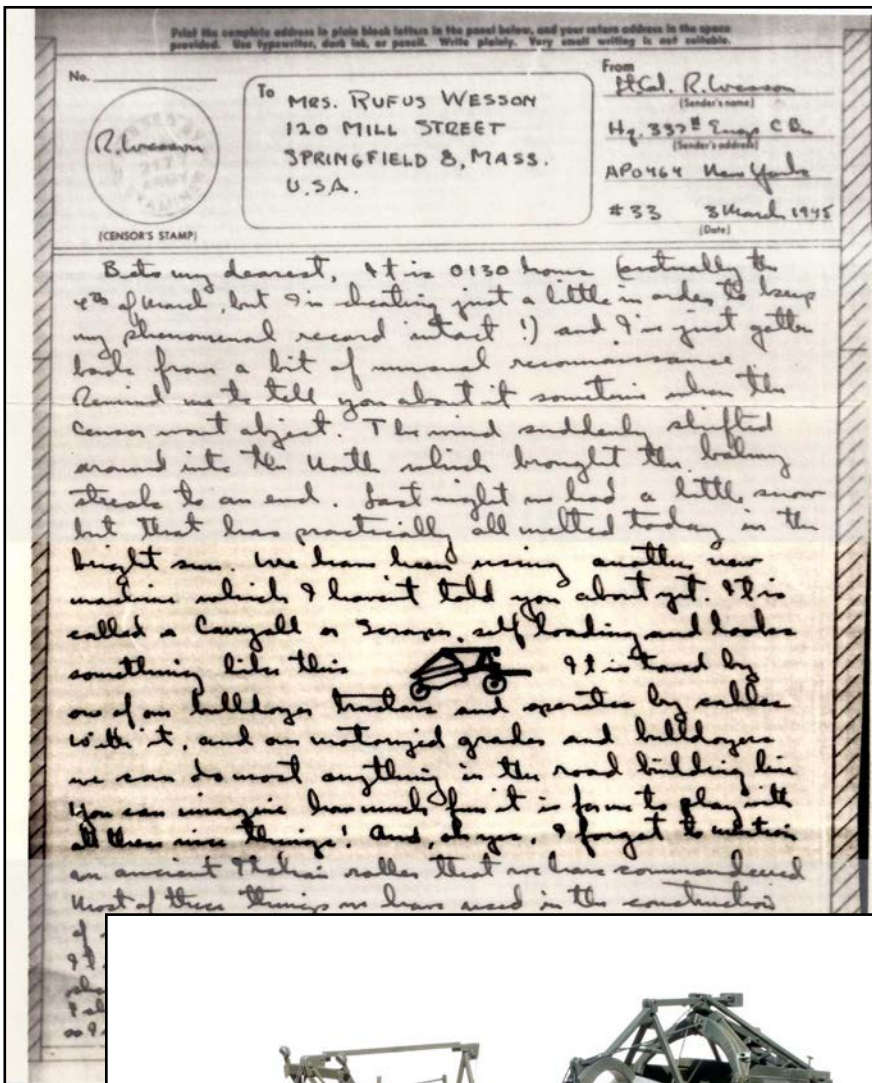 Print the complete address in plain block letters in the panel below, and your return address in the space
provided. Use typewriter, dark ink, or pencil. Write plainly. Very small writing is not suitable.
No.
To
MRS. RUFUS WESSON
120 MILL STREET
SPRINGFIELD 8, MASS.
U.S.A.
R. Wesson
(CENSOR'S STAMP)
From
Lt. Col. R. Wesson
(Sender's name)
Hq. 337th Engr C Bn
(Sender's address)
APO 464 New York
#33 3 March 1945
(Date)
Bets my dearest, It is 0130 hours (actually the
4th of March, but I'm cheating just a little in order to keep
my phenomenal record intact!) and I've just gotten
back from a bit of unusual reconnaissance
Remind me to tell you about it sometime when the
censor wont object. The wind suddenly shifted
around into the North which brought the balmy
streak to an end. Last night we had a little snow
but that has practically all melted today in the
bright sun. We have been using another new
machine which I haven't told you about yet. It is
called a Carryall or Scraper, self loading and looks
something like this It is towed by
one of our bulldozer tractors and operates by cables
With it, and our motorized grader and bulldozers
we can do most anything in the road building line
You can imagine how much fun it is for me to play with
all these nice things! And, oh yes, I forgot to mention
an ancient Italian roller that we have commandeered
Most of these things we have used in the construction
of